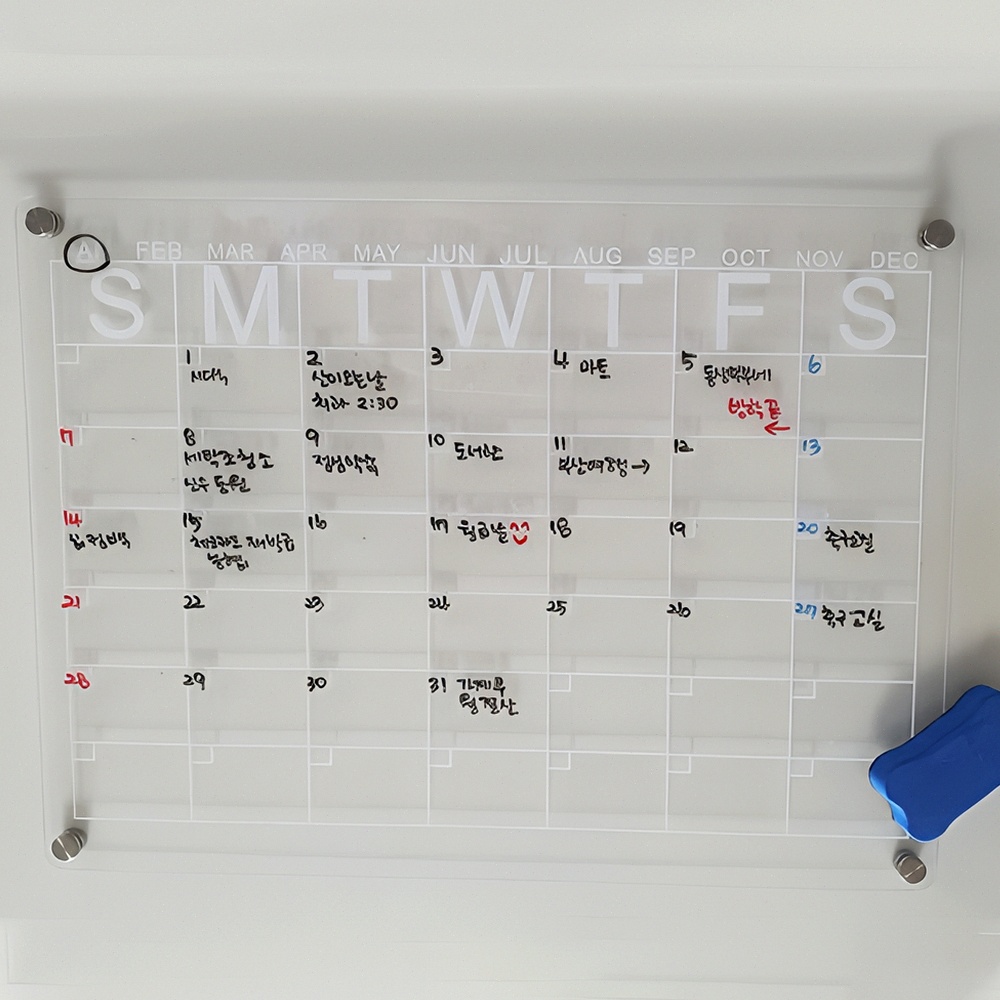 JAN FEB MAR APR MAY JUN JUL AUG SEP OCT NOV DEC
S M T W T F S
1
시댁
2
산이오는날
치과 2:30
3
4 마트
5
동생부부네
방학끝
6
7
8
세탁조청소
산수 동원
9
점심약속
10 도서관
11
부산여행
12
13
14
15
16
17 월급날
18
19
20 축구교실
21
22
23
24
25
26
27 축구교실
28
29
30
31 가계부
월결산